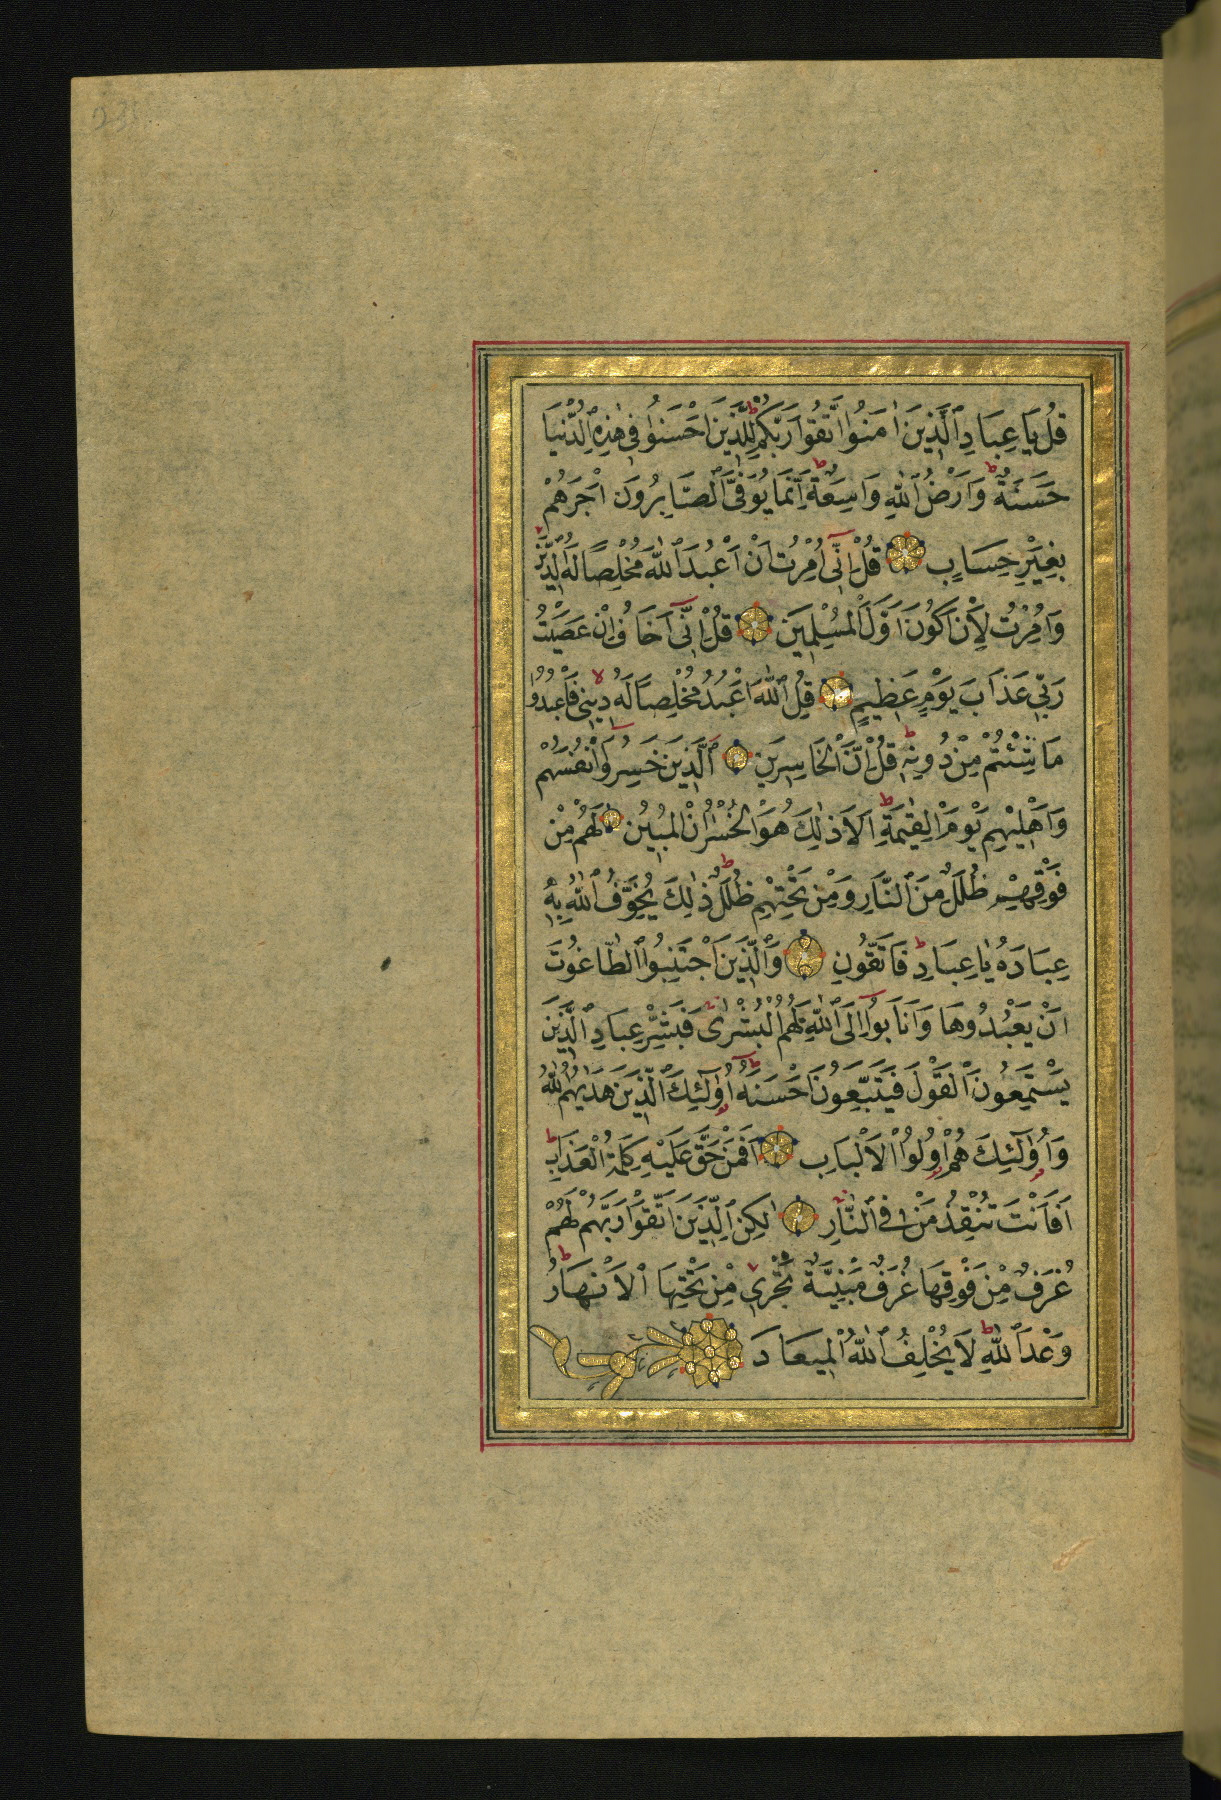 قُلْ يَا عِبَادِ ٱلَّذِينَ اٰمَنُوا ٱتَّقُوا رَبَّكُمْ لِلَّذِينَ اَحْسَنُوا فِى هٰذِهِ ٱلدُّنْيَا
حَسَنَةٌ وَاَرْضُ ٱللّٰهِ وَاسِعَةٌ اِنَّمَا يُوَفَّى ٱلصَّابِرُونَ اَجْرَهُمْ
بِغَيْرِ حِسَابٍ قُلْ اِنِّىٓ اُمِرْتُ اَنْ اَعْبُدَ ٱللّٰهَ مُخْلِصًا لَهُ ٱلدِّينَ
وَاُمِرْتُ لِاَنْ اَكُونَ اَوَّلَ ٱلْمُسْلِمِينَ قُلْ اِنِّىٓ اَخَافُ اِنْ عَصَيْتُ
رَبِّى عَذَابَ يَوْمٍ عَظِيمٍ قُلِ ٱللّٰهَ اَعْبُدُ مُخْلِصًا لَهُ دِينِى فَاعْبُدُوا
مَا شِئْتُمْ مِنْ دُونِهِ قُلْ اِنَّ ٱلْخَاسِرِينَ ٱلَّذِينَ خَسِرُوٓا اَنْفُسَهُمْ
وَاَهْلِيهِمْ يَوْمَ ٱلْقِيٰمَةِ اَلَا ذٰلِكَ هُوَ ٱلْخُسْرَانُ ٱلْمُبِينُ لَهُمْ مِنْ
فَوْقِهِمْ ظُلَلٌ مِنَ ٱلنَّارِ وَمِنْ تَحْتِهِمْ ظُلَلٌ ذٰلِكَ يُخَوِّفُ ٱللّٰهُ بِهِ
عِبَادَهُ يَا عِبَادِ فَاتَّقُونِ وَٱلَّذِينَ اجْتَنَبُوا ٱلطَّاغُوتَ
اَنْ يَعْبُدُوهَا وَاَنَابُوٓا اِلَى ٱللّٰهِ لَهُمُ ٱلْبُشْرٰى فَبَشِّرْ عِبَادِ ٱلَّذِينَ
يَسْتَمِعُونَ ٱلْقَوْلَ فَيَتَّبِعُونَ اَحْسَنَهُ اُولٰٓئِكَ ٱلَّذِينَ هَدٰيهُمُ ٱللّٰهُ
وَاُولٰٓئِكَ هُمْ اُولُوا ٱلْاَلْبَابِ اَفَمَنْ حَقَّ عَلَيْهِ كَلِمَةُ ٱلْعَذَابِ
اَفَاَنْتَ تُنْقِذُ مَنْ فِى ٱلنَّارِ لٰكِنِ ٱلَّذِينَ اتَّقَوْا رَبَّهُمْ لَهُمْ
غُرَفٌ مِنْ فَوْقِهَا غُرَفٌ مَبْنِيَّةٌ تَجْرِى مِنْ تَحْتِهَا ٱلْاَنْهَارُ
وَعْدَ ٱللّٰهِ لَا يُخْلِفُ ٱللّٰهُ ٱلْمِيعَادَ